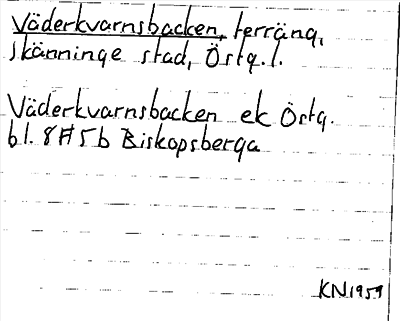 Väderkvarnsbacken, terräng,
Skänninge stad, Östg.l.
Väderkvarnsbacken ek Östg.
bl. 8F5b Biskopsberga
KN 1959